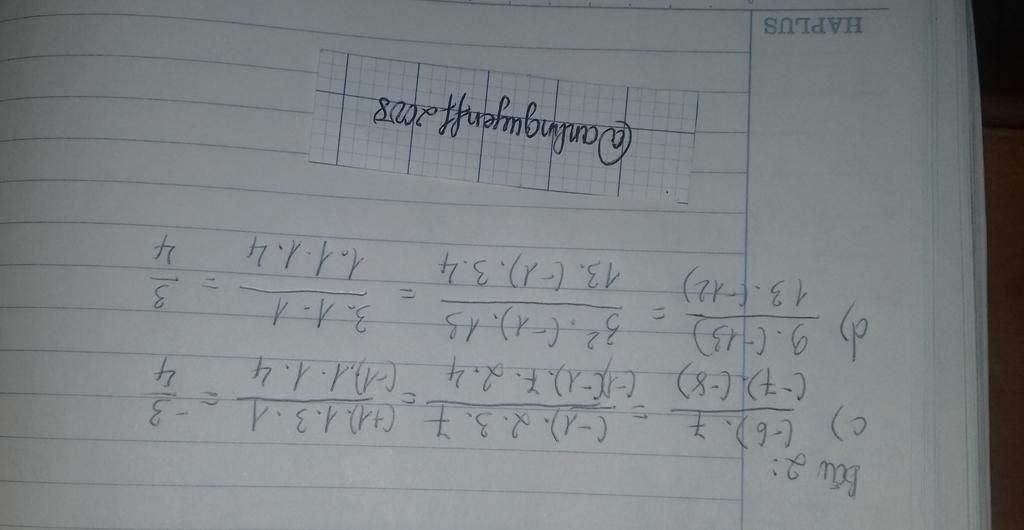 Bài 2:
c) (-6).7 / (-7).(-8) = (-1).2.3.7 / (-1)(-1).7.2.4 = (+1).1.3.1 / (-1).1.1.4 = -3 / 4
d) 9.(-13) / 13.(-12) = 3².(-1).13 / 13.(-1).3.4 = 3.1.1 / 1.1.1.4 = 3 / 4
@anhnguyenff2008
HAPLUS